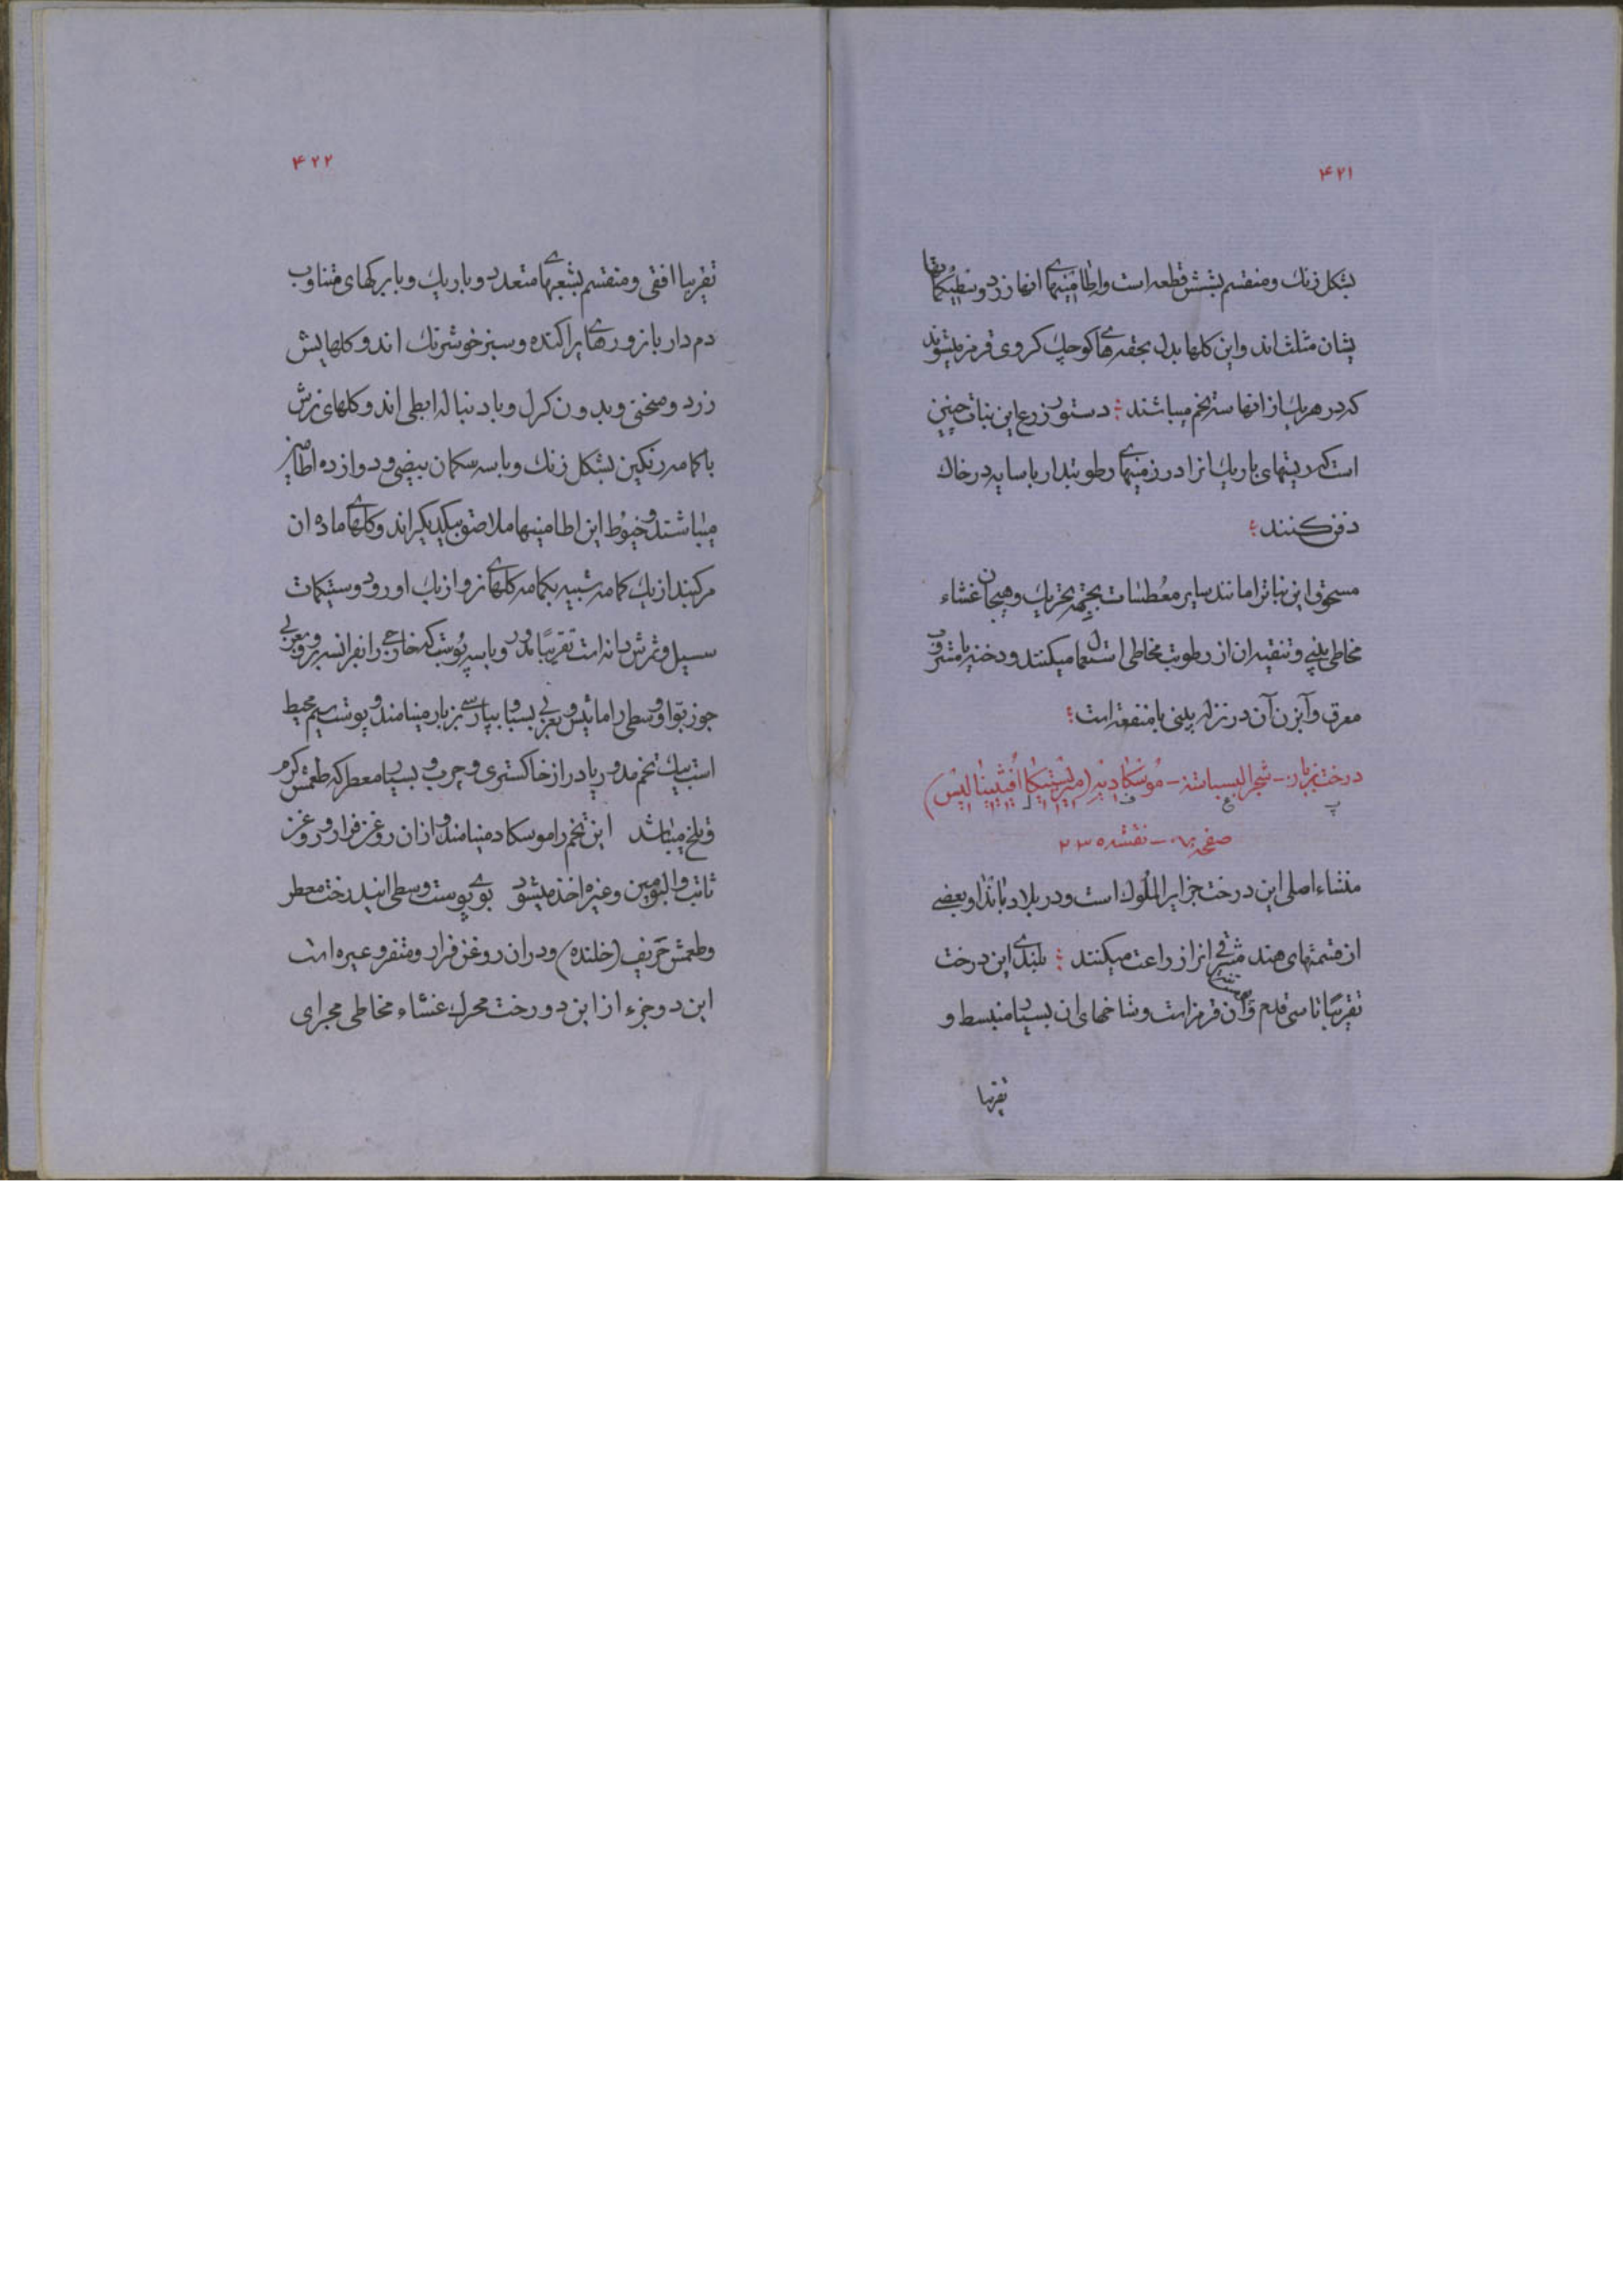 ۴۲۱
بشکل زنك و منقسم بشش قطعه است و اطامینهای انها زرد و
یشان مثلث اند و این کلها بدل بحقه های کوچك کروی قرمز میشوند
که در هر یك از انها سه تخم میباشند : دستور زرع این نبات چنین
است که ریشهای باریك انرا در زمینهای رطوبتدار با سایه در خاك
دفن کنند :
مسحوق این نباترا مانند سایر معطسات بجهة تحریك و هیجان غشاء
مخاطی بینی و تنقیه ان از رطوبت مخاطی استعمال میکنند و دخنه یا مشروب
معرق و آبزن آن در نزله بینی با منفعة است :
درخت بزباز - شجر البسباسة - موسکادیه (میریستیکا افیثینالیس)
پ ع ف ل
صفحه - نقشه ۲۳۵
منشاء اصلی این درخت جزایر الملوك است و در بلاد باندا و بعضی
از قسمتهای هند مشرقی انرا زراعت میکنند : بلندی این درخت
تقریبًا تا سی قدم و آن قرمز است و شاخهای ان بسیار منبسط و
تقریبا
۴۲۲
تقریبا افقی و منقسم بشعبهای متعدد و باریك و با برکهای متناوب
دم دار با زورهای پراکنده و سبز خوشرنك اند و کلهایش
زرد و منحنی و بدون کرل و با دنباله ابطی اند و کلهای نرش
با کامه رنکین بشکل زنك و با سه سکمان بیضی و دوازده اطامین
میباشند و خیوط این اطامینها ملاصق بیکدیکر اند و کلهای ماده ان
مرکبند از یك کامه شبیه بکامه کلهای نر و از یك اور و دو ستیکمات
سسیل و ثمرش دانه است تقریبًا مدور و با سه پوست که خارجی را بفرانسه و بعربی
جوز بوا و وسطی را مائیس و بعربی بسباسه و بپارسی بزباز مینامند و پوست سیم محیط
است بیك تخم مدور یا دراز خاکستری و چرب و بسیار معطر که طعمش کرم
و تلخ میباشد این تخم را موسکاد مینامند و از ان روغن فرار و روغن
ثابت و البومین و غیره اخذ میشود بوی پوست وسطی ایندرخت معطر
و طعمش حریف (خلنده) و در ان روغن فرار و متفرو غیره است
این دو جزء از این دو رخت محرك غشاء مخاطی مجرای